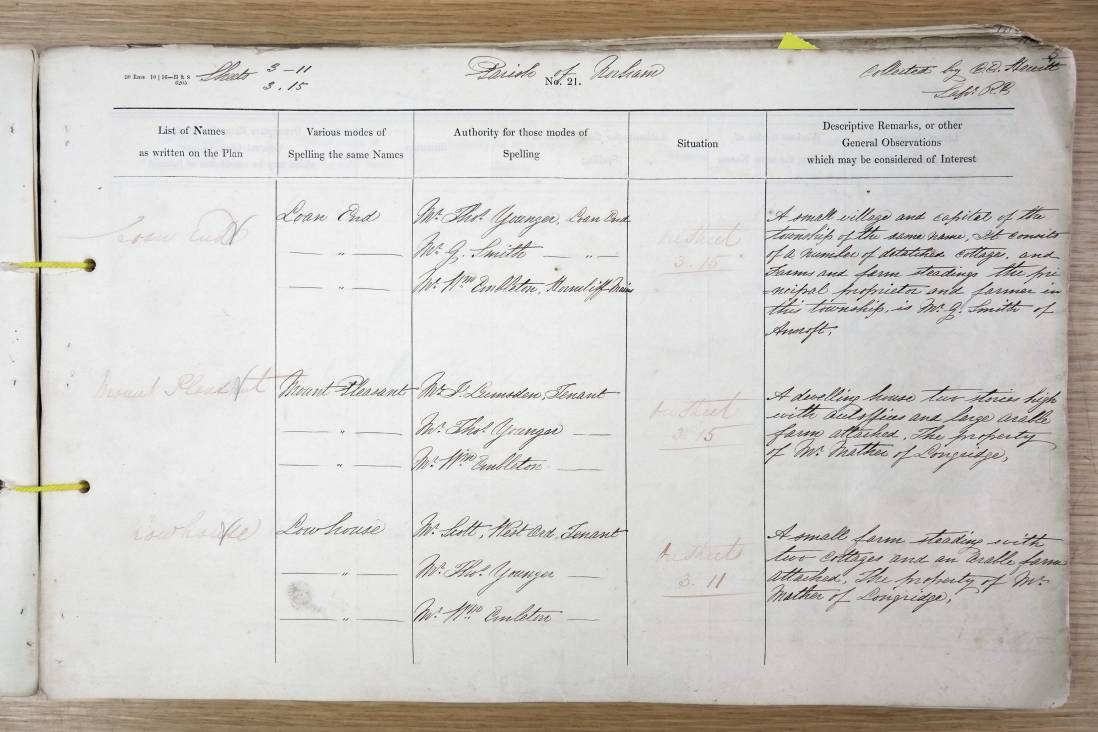 Sheets 3-11
3.15
Parish of Norham
No. 21.
Collected by
Sapr. R.E.
List of Names
as written on the Plan
Various modes of
Spelling the same Names
Authority for those modes of
Spelling
Situation
Descriptive Remarks, or other
General Observations
which may be considered of Interest
Loan End
Loan End
Mr. Thos. Younger, Loan End
On Sheet
3.15
A small village and capital of the
township of the same name, It consists
of a number of detatched cottages, and
Farms and farm steadings the pri-
ncipal proprietor and farmer in
this township, is Mr. G. Smith of
Ancroft,
— " —
Mr. G. Smith — " —
— " —
Mr. Wm. Embleton, Horncliff Mains
Mount Pleasant
Mount Pleasant
Mr. J. Lumsden, Tenant
On Sheet
3.15
A dwelling house two stories high
with outoffices and large arable
farm attached, The property
of Mr. Mather of Longridge,
— " —
Mr. Thos. Younger —
— " —
Mr. Wm. Embleton —
Lowhouse
Lowhouse
Mr. Scott, West Ord, Tenant
On Sheet
3.11
A small farm steading with
two cottages and an arable farm
attached, The property of Mr.
Mather of Longridge,
— " —
Mr. Thos. Younger —
— " —
Mr. Wm. Embleton —